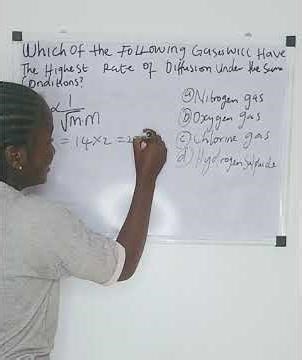 Which Of the Following Gases will Have
The Highest Rate of Diffusion Under the Same
Conditions?
α 1
√MM
= 14×2 = 2
ⓐ Nitrogen gas
ⓑ Oxygen gas
ⓒ Chlorine gas
ⓓ Hydrogen sulphide